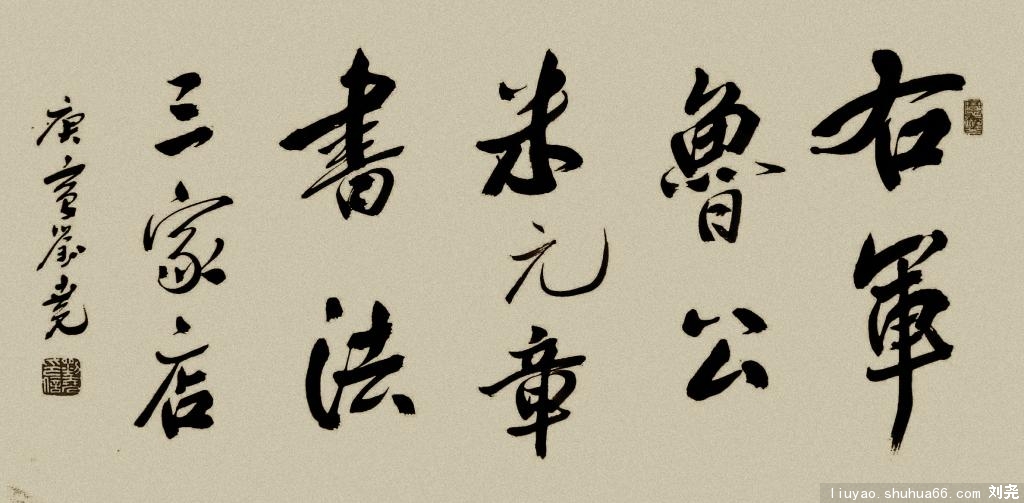 右軍
魯公
米元章
書法
三家店
庚寅劉堯
liuyao.shuhua66.com 刘尧